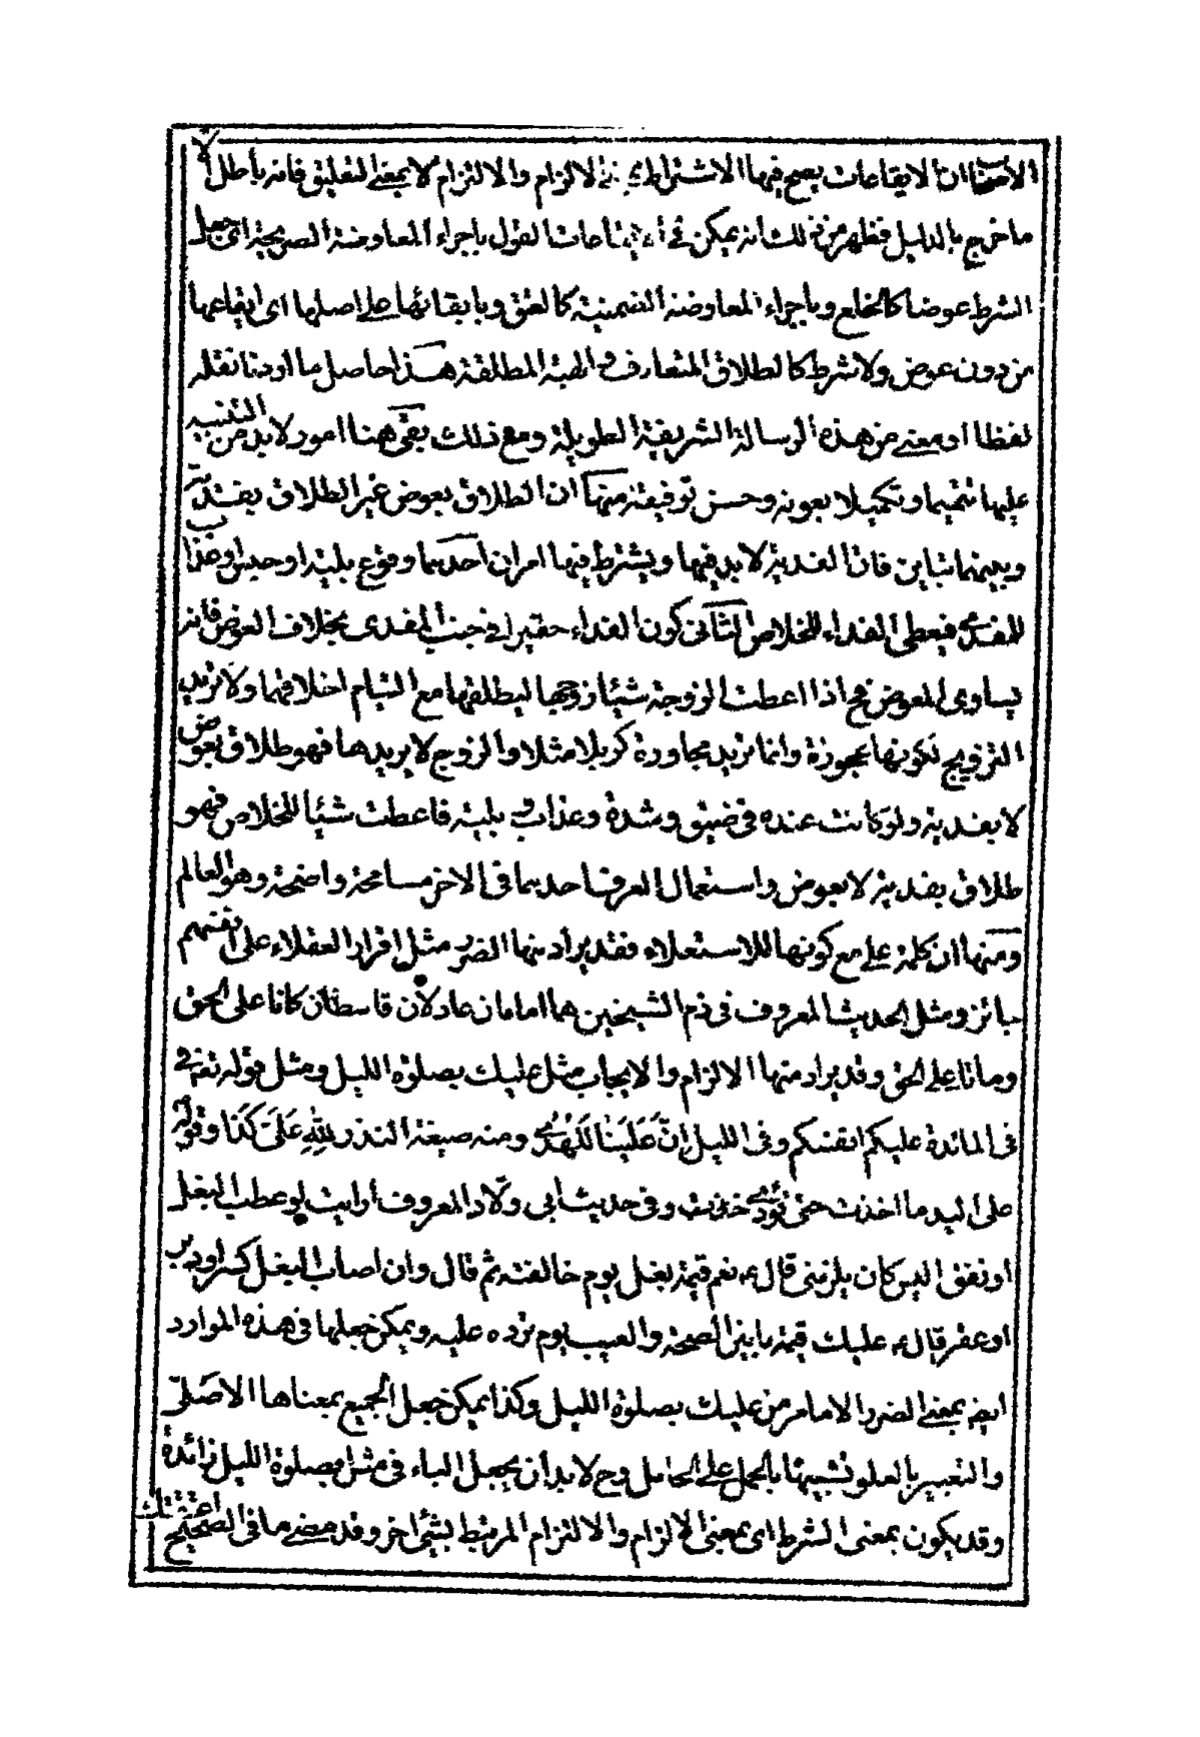 ان الايقاعات يصح فيها الاشتراط بمعنى الالزام والالتزام لا بمعنى التعليق فانه باطل الا
ما خرج بالدليل فظهر من ذلك انه يمكن في القول باجراء المعاوضة الصريحة اى جعل
الشرط عوضا كالخلع وباجراء المعاوضة الضمنية كالعتق وبابقائها على اصلها اى ايقاعها
من دون عوض ولا شرط كالطلاق المتعارف والهبة المطلقة هذا حاصل ما اردنا نقله
لفظا او معنى من هذه الرسالة الشريفة الطويلة ومع ذلك بقى هنا امور لابد من التنبيه
عليها تتميما وتكميلا بعونه وحسن توفيقه منها ان الطلاق بعوض غير الطلاق بفدية
وبينهما تباين فان الفدية لابد فيها ويشترط فيها امران احدهما وقوع بلية او حبس او عذاب
للمفدى فيعطى الفداء للخلاص الثانى كون الفداء حقيرا فى جنب المفدى بخلاف العوض فانه
يساوى المعوض فح اذا اعطت الزوجة شيئا زوجها ليطلقها مع التيام اخلاقهما ولا تريد
التزويج لكونها عجوزة وانما تريد مجاورة كربلا مثلا والزوج لا يريدها فهو طلاق بعوض
لا بفدية ولو كانت عنده فى ضيق وشدة وعذاب وبلية فاعطت شيئا للخلاص فهو
طلاق بفدية لا بعوض واستعمال العرف احدهما فى الاخر مسامحة واضحة وهو العالم
ومنها ان كلمة على مع كونها للاستعلاء فقد يراد منها الضرر مثل اقرار العقلاء على انفسهم
جائز ومثل الحديث المعروف فى ذم الشيخين هما امامان عادلان قاسطان كانا على الحق
وماتا على الحق وقد يراد منها الالزام والايجاب مثل عليك بصلوة الليل ومثل قوله تعالى
فى المائدة عليكم انفسكم وفى الليل إِنَّ عَلَيْنَا لَلْهُدىٰ ومنه صيغة النذر لِلّٰهِ عَلَىَّ كَذَا وقوله
على اليد ما اخذت حتى تؤدى وفى حديث ابى ولّاد المعروف ارايت لو عطب البغل
او نفق اليس كان يلزمنى قال ع نعم قيمة بغل يوم خالفته ثم قال وان اصاب البغل كسر او دبر
او عقر قال ع عليك قيمة ما بين الصحة والعيب يوم ترده عليه ويمكن جعلها فى هذه الموارد
ايضا بمعنى الضرر الا مامر من عليك بصلوة الليل وكذا يمكن جعل الجميع بمعناها الاصلى
والتعبير بالعلو تشبيها بالحمل على الحامل وح لابد ان يجعل الباء فى مثل بصلوة الليل زائدة
وقد يكون بمعنى الشرط اى بمعنى الالزام والالتزام المرتبط بشئ اخر وقد مضى ما فى الصحيح اعتقتك